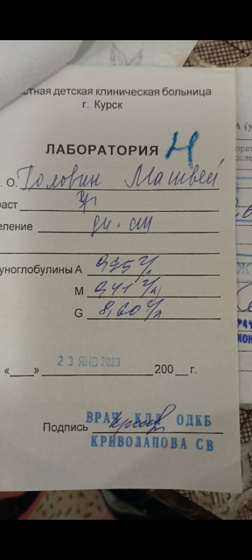 стная детская клиническая больница
г. Курск
ЛАБОРАТОРИЯ Н
. О. Головин Матвей
раст
еление
уноглобулины А 0,95 г/л
М 0,41 г/л
G 8,60 г/л
«___» 23 ЯНВ 2023 200___ г.
ВРАЧ КДЛ ОДКБ
Подпись
КРИВОЛАПОВА СВ